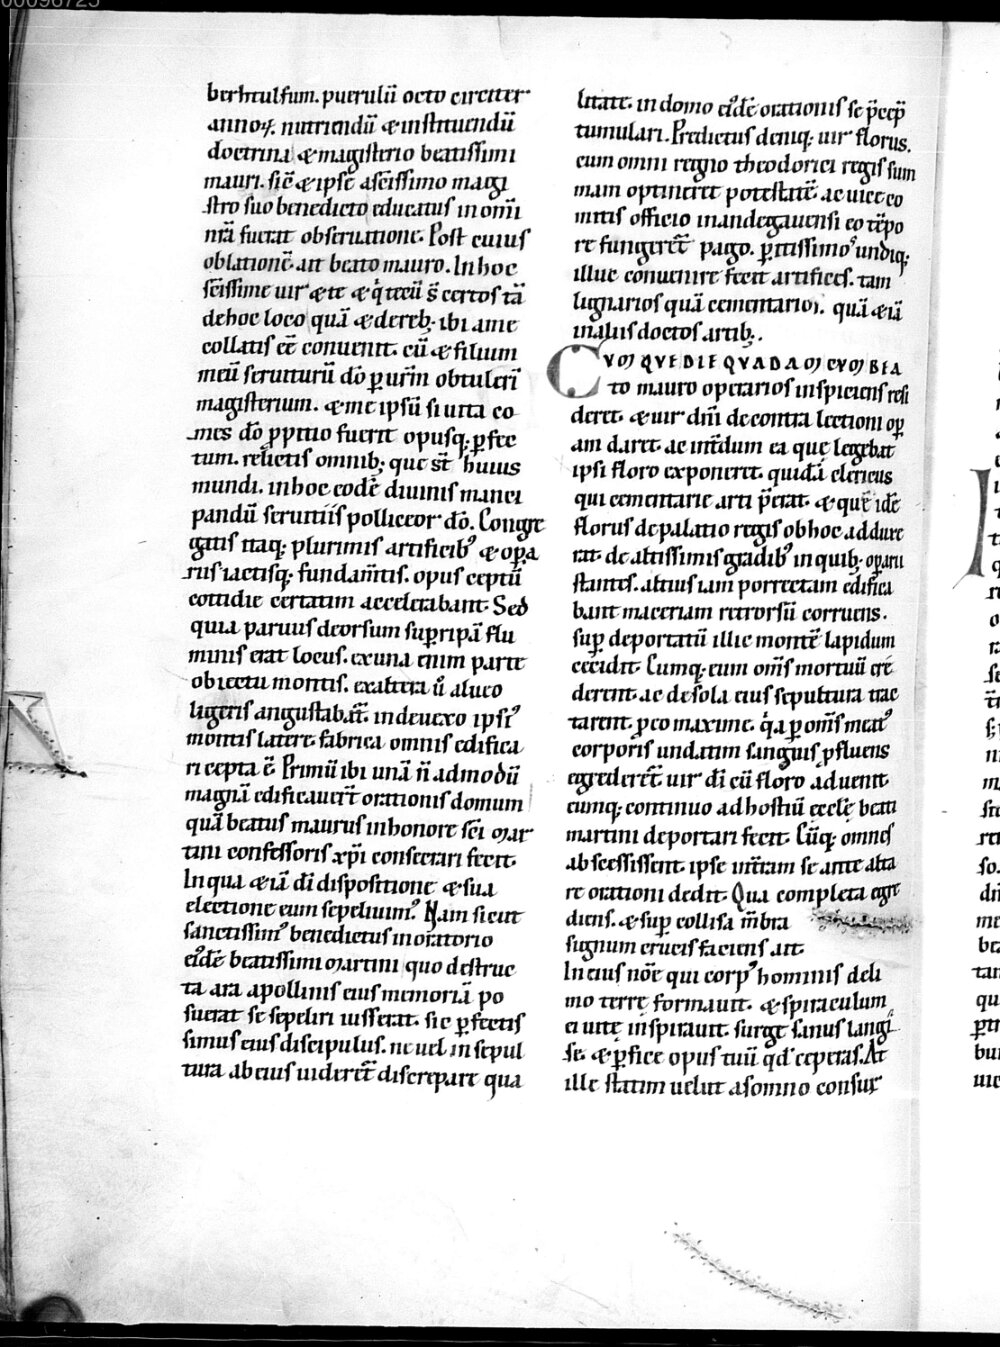 berhtulfum. puerulũ octo circiter
annoꝝ. nutriendũ & instituendũ
doctrina & magisterio beatissimi
mauri. sic̃ & ipse a sc̃issimo magi
stro suo benedicto educatus in om̃i
nr̃a fuerat obseruatione. Post cuius
oblationẽ ait beato mauro. In hoc
sc̃issime uir & te & q̇ tecũ s̃ certos tã
de hoc loco quã & de reb; ibi a me
collatis eẽ conuenit. eũ & filium
meũ seruiturũ dõ ꝑ ur̃m obtuleri
magisterium. & me ipsũ si uita co
mes dõ ꝓpitio fuerit opusq; ꝑfec
tum. relictis omnib; que st̃ huius
mundi. in hoc eodẽ diuinis manci
pandũ seruitiis polliceor dõ. Congre
gatis itaq; plurimis artificibꝰ & oꝑa
rus iactisq; fundam̃tis. opus ceptũ
cottidie certatim accelerabant. Sed
quia paruus deorsum suꝑ ripã flu
minis erat locus. ex una enim parte
obiectu montis. ex altera ũ alueo
ligeris angustabat̃. in deuexo ipsiꝰ
montis latere fabrica omnis edifica
ri cepta ẽ. Primũ ibi unã ñ admodũ
magnã edificauer̃t orationis domum
quã beatus maurus in honore sc̃i mar
tini confessoris xp̃i consecrari fecit.
In qua & iã dĩ dispositione & sua
electione eum sepeliuimꝰ. Nam sicut
sanctissimꝰ benedictus in oratorio
eiꝰdẽ beatissimi martini quo destruc
ta ara apollinis eius memoriã po
suerat se sepeliri iusserat. sic ꝑfectis
simus eius discipulus. ne uel in sepul
tura ab eius uideret̃ discrepare qua
litate. in domo eiꝰdẽ orationis se p̃cep̃
tumulari. Predictus deniq; uir florus.
cum omni regno theodorici regis sum
mam optineret potestatẽ. ac uice co
mitis officio in andegauensi eo tẽpo
re fungeret̃ pago. ꝑitissimoꝰ undiq;
illuc conuenire fecit artifices. tam
lignarios quã cementarios. quã & iã
in aliis doctos artib;.
CVM QVE DIE QVADAM CVM BEA
to mauro operarios inspiciens resi
deret. & uir dñi de contra lectioni oꝑ
am daret. ac int̃dum ea que legebat
ipsi floro exponeret. quidã clericus
qui cementarie arti p̃erat. & quẽ idẽ
florus de palatio regis ob hoc adduxe
rat. de altissimis gradibꝰ in quib; oꝑarii
stantes. altius iam porrectam edifica
bant maceriam retrorsũ corruens.
suꝑ deportatũ illic montẽ lapidum
cecidit. Cumq; eum om̃s mortuũ cre
derent. ac de sola eius sepultura trac
tarent. ꝓeo maxime. q̇a ꝑ om̃s meatꝰ
corporis undatim sanguis ꝓfluens
egrederet̃ uir dĩ cũ floro aduenit
eumq; continuo ad hostiũ eccle beati
martini deportari fecit. Cũq; omnes
abscessissent. ipse int̃im se ante alta
re orationi dedit. Qua completa egre
diens. & suꝑ collisa m̃bra
signum crucis faciens ait.
In eius noĩe qui corpꝰ hominis de li
mo terrę formauit. & spiraculum
ei uitę inspirauit. surge sanus langi
se. & ꝑfice opus tuũ qd̃ ceperas. At
ille statim uelut a somno consur